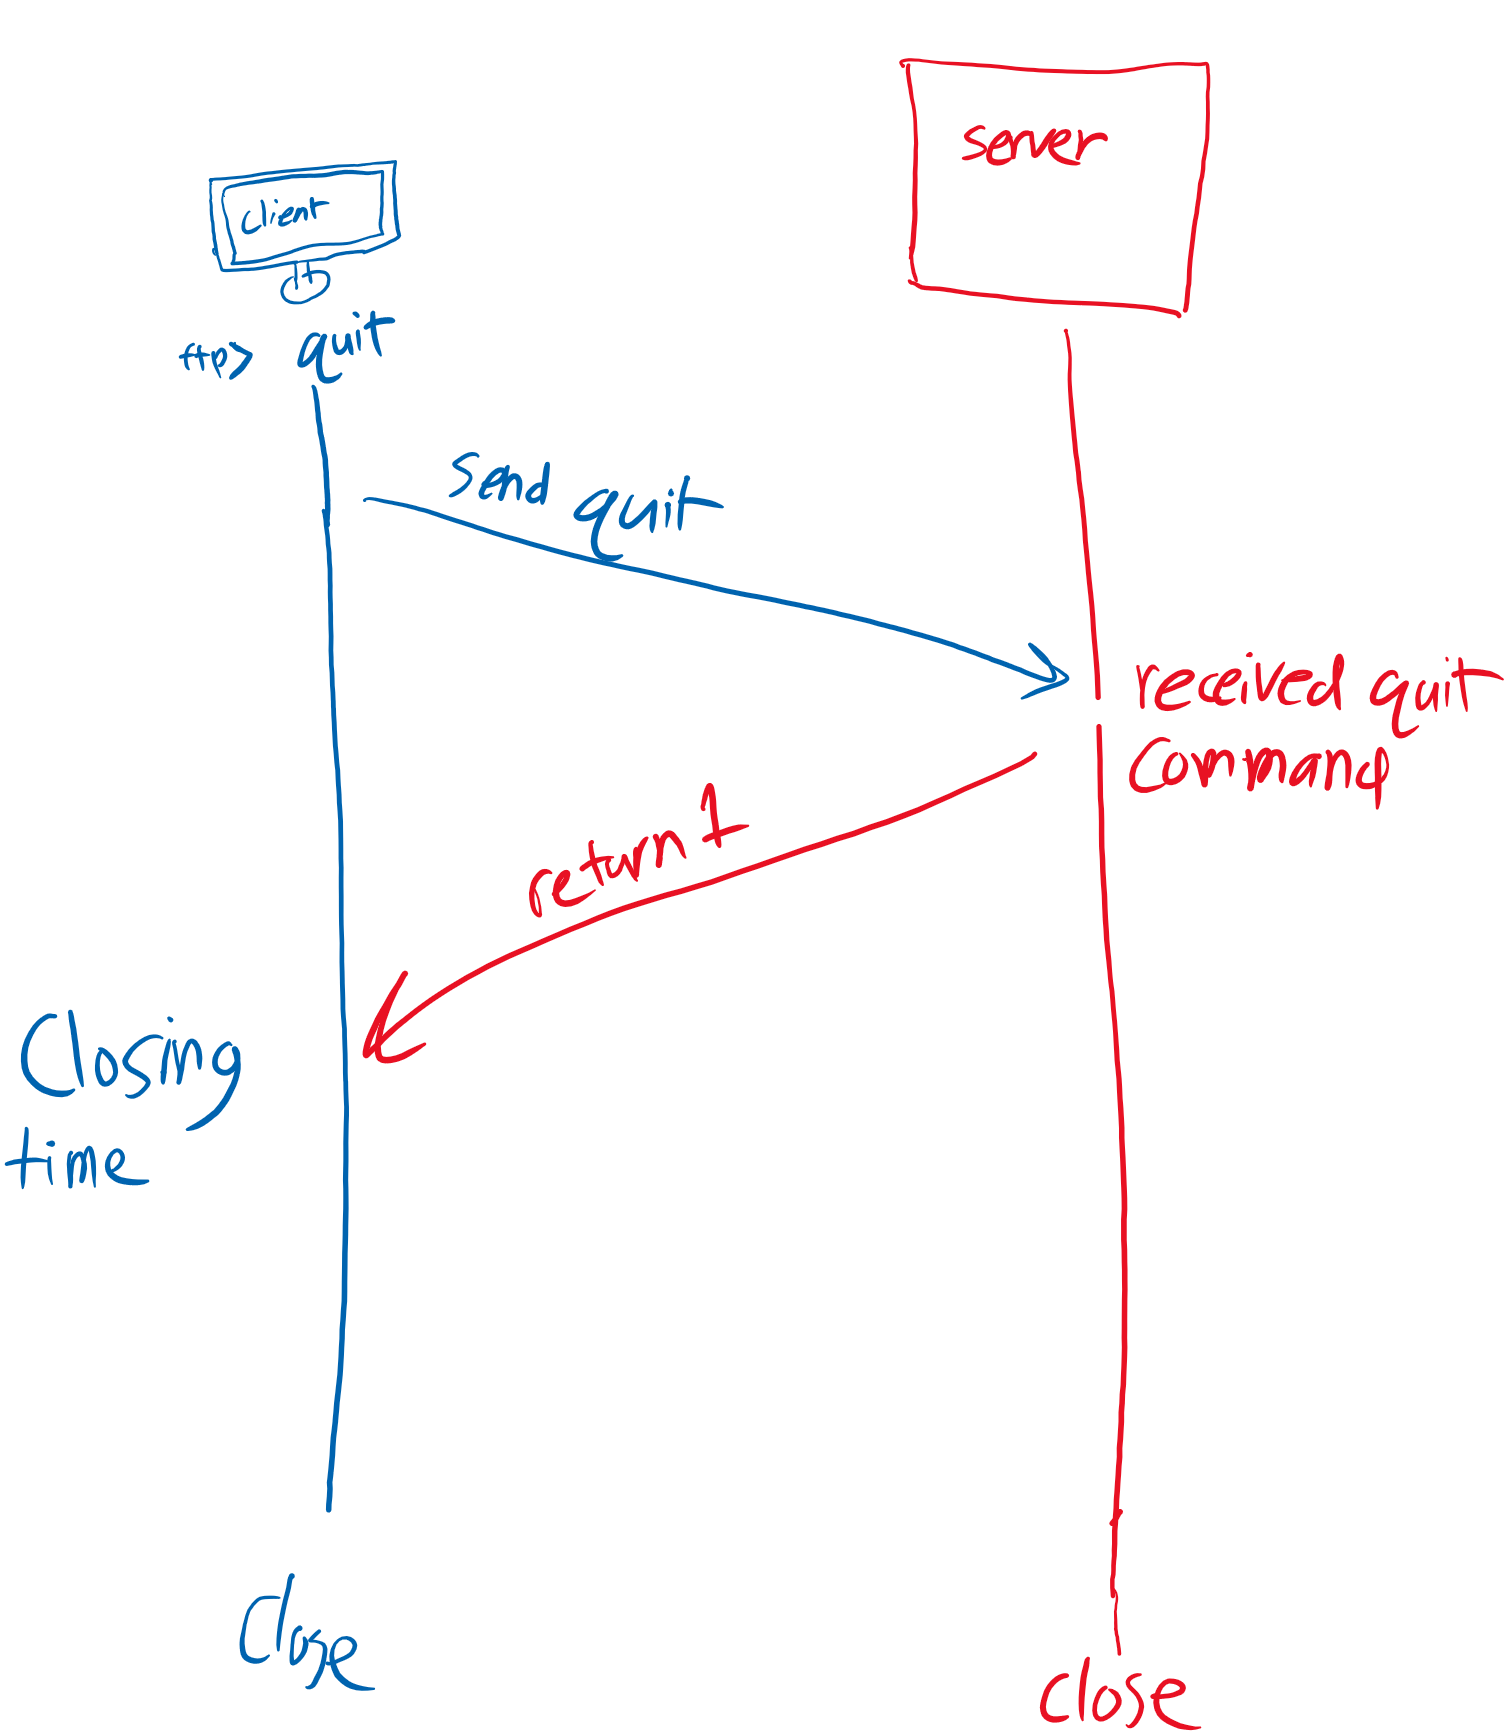 server
client
ftp> quit
send quit
received quit
command
return 1
Closing
time
Close
close